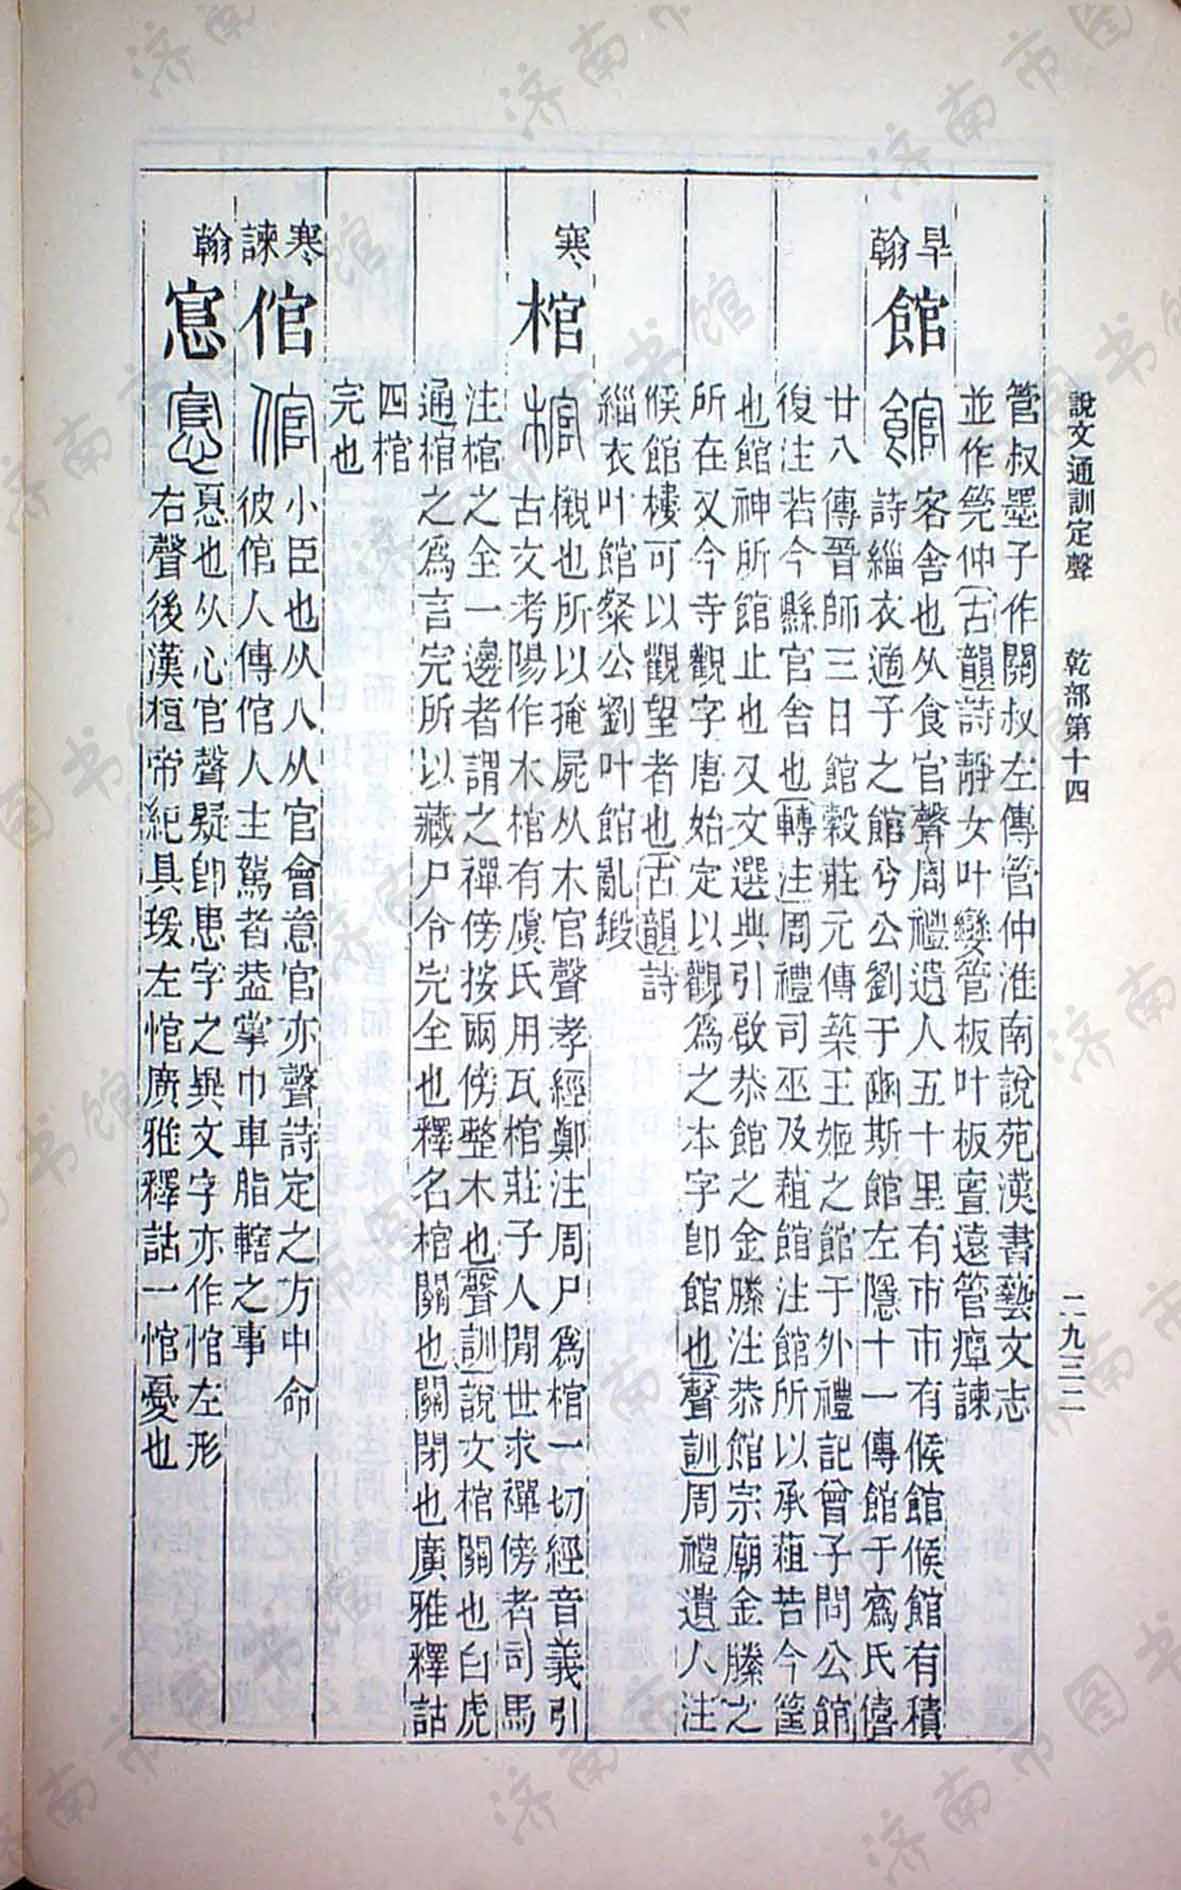 說文通訓定聲 乾部第十四 二九三二
管叔墨子作關叔左傳管仲淮南說苑漢書藝文志
並作筦仲古韻詩靜女叶孌管板叶板亶遠管癉諫
旱
翰
館
客舍也从食官聲周禮遺人五十里有市市有候館候館有積
詩緇衣適子之館兮公劉于豳斯館左隱十一傳館于寪氏僖
廿八傳晉師三日館穀莊元傳築王姬之館于外禮記曾子問公館
復注若今縣官舍也轉注周禮司巫及蒩館注館所以承蒩若今筐
也館神所館止也又文選典引啟恭館之金縢注恭館宗廟金縢之
所在又今寺觀字唐始定以觀為之本字即館也聲訓周禮遺人注
候館樓可以觀望者也古韻詩
緇衣叶館粲公劉叶館亂鍛
寒
棺
櫬也所以掩屍从木官聲孝經鄭注周尸為棺一切經音義引
古文考陽作木棺有虞氏用瓦棺莊子人閒世求禪傍者司馬
注棺之全一邊者謂之禪傍按兩傍整木也聲訓說文棺關也白虎
通棺之為言完所以藏尸令完全也釋名棺關也關閉也廣雅釋詁
四棺
完也
寒
諫
倌
小臣也从人从官會意官亦聲詩定之方中命
彼倌人傳倌人主駕者葢掌巾車脂轄之事
翰
悹
惪也从心官聲疑即患字之異文字亦作悺左形
右聲後漢桓帝紀具瑗左悺廣雅釋詁一悺憂也
济南市图书馆